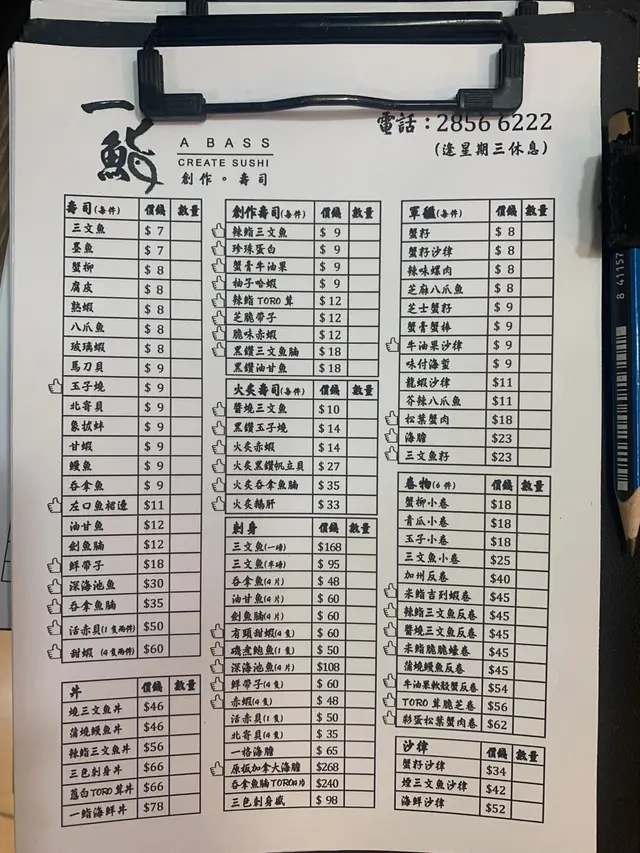 一鮨
A BASS
CREATE SUSHI
創作。壽司
電話：2856 6222
(逢星期三休息)
壽司(每件) 價錢 數量
三文魚 $ 7
墨魚 $ 7
蟹柳 $ 8
腐皮 $ 8
熟蝦 $ 8
八爪魚 $ 8
玻璃蝦 $ 8
馬刀貝 $ 9
玉子燒 $ 9
北寄貝 $ 9
象拔蚌 $ 9
甘蝦 $ 9
鰻魚 $ 9
吞拿魚 $ 9
左口魚裙邊 $11
油甘魚 $12
劍魚腩 $12
鮮帶子 $18
深海池魚 $30
吞拿魚腩 $35
活赤貝(1隻兩件) $50
甜蝦 (4隻兩件) $60
丼 價錢 數量
燒三文魚丼 $46
蒲燒鰻魚丼 $46
辣鮨三文魚丼 $56
三色刺身丼 $66
蔥白TORO茸丼 $66
一鮨海鮮丼 $78
創作壽司(每件) 價錢 數量
辣鮨三文魚 $ 9
珍珠蛋白 $ 9
蟹膏牛油果 $ 9
柚子哈蝦 $ 9
辣鮨TORO茸 $12
芝脆帶子 $12
脆味赤蝦 $12
黑鑽三文魚腩 $18
黑鑽油甘魚 $18
火炙壽司(每件) 價錢 數量
醬燒三文魚 $10
黑鑽玉子燒 $14
火炙赤蝦 $14
火炙黑鑽帆立貝 $27
火炙吞拿魚腩 $35
火炙鵝肝 $33
刺身 價錢 數量
三文魚(一磅) $168
三文魚(半磅) $ 95
吞拿魚(4片) $ 48
油甘魚(4片) $ 60
劍魚腩(4片) $ 60
有頭甜蝦(4隻) $ 60
磯煮鮑魚(1隻) $ 50
深海池魚(4片) $108
鮮帶子(4隻) $ 60
赤蝦(4隻) $ 48
活赤貝(1隻) $ 50
北寄貝(4隻) $ 35
一格海膽 $ 65
原板加拿大海膽 $268
吞拿魚腩TORO(4片) $240
三色刺身盛 $ 98
軍艦(每件) 價錢 數量
蟹籽 $ 8
蟹籽沙律 $ 8
辣味螺肉 $ 8
芝麻八爪魚 $ 8
芝士蟹籽 $ 9
蟹膏蟹棒 $ 9
牛油果沙律 $ 9
味付海蜇 $ 9
龍蝦沙律 $11
芥辣八爪魚 $11
松葉蟹肉 $18
海膽 $23
三文魚籽 $23
卷物(6件) 價錢 數量
蟹柳小卷 $18
青瓜小卷 $18
玉子小卷 $18
三文魚小卷 $25
加州反卷 $40
米鮨吉列蝦卷 $45
辣鮨三文魚反卷 $45
醬燒三文魚反卷 $45
米鮨脆脆蠔卷 $45
蒲燒鰻魚反卷 $45
牛油果軟殼蟹反卷 $54
TORO茸脆芝卷 $56
彩蛋松葉蟹肉卷 $62
沙律 價錢 數量
蟹籽沙律 $34
煙三文魚沙律 $42
海鮮沙律 $52
8 41157